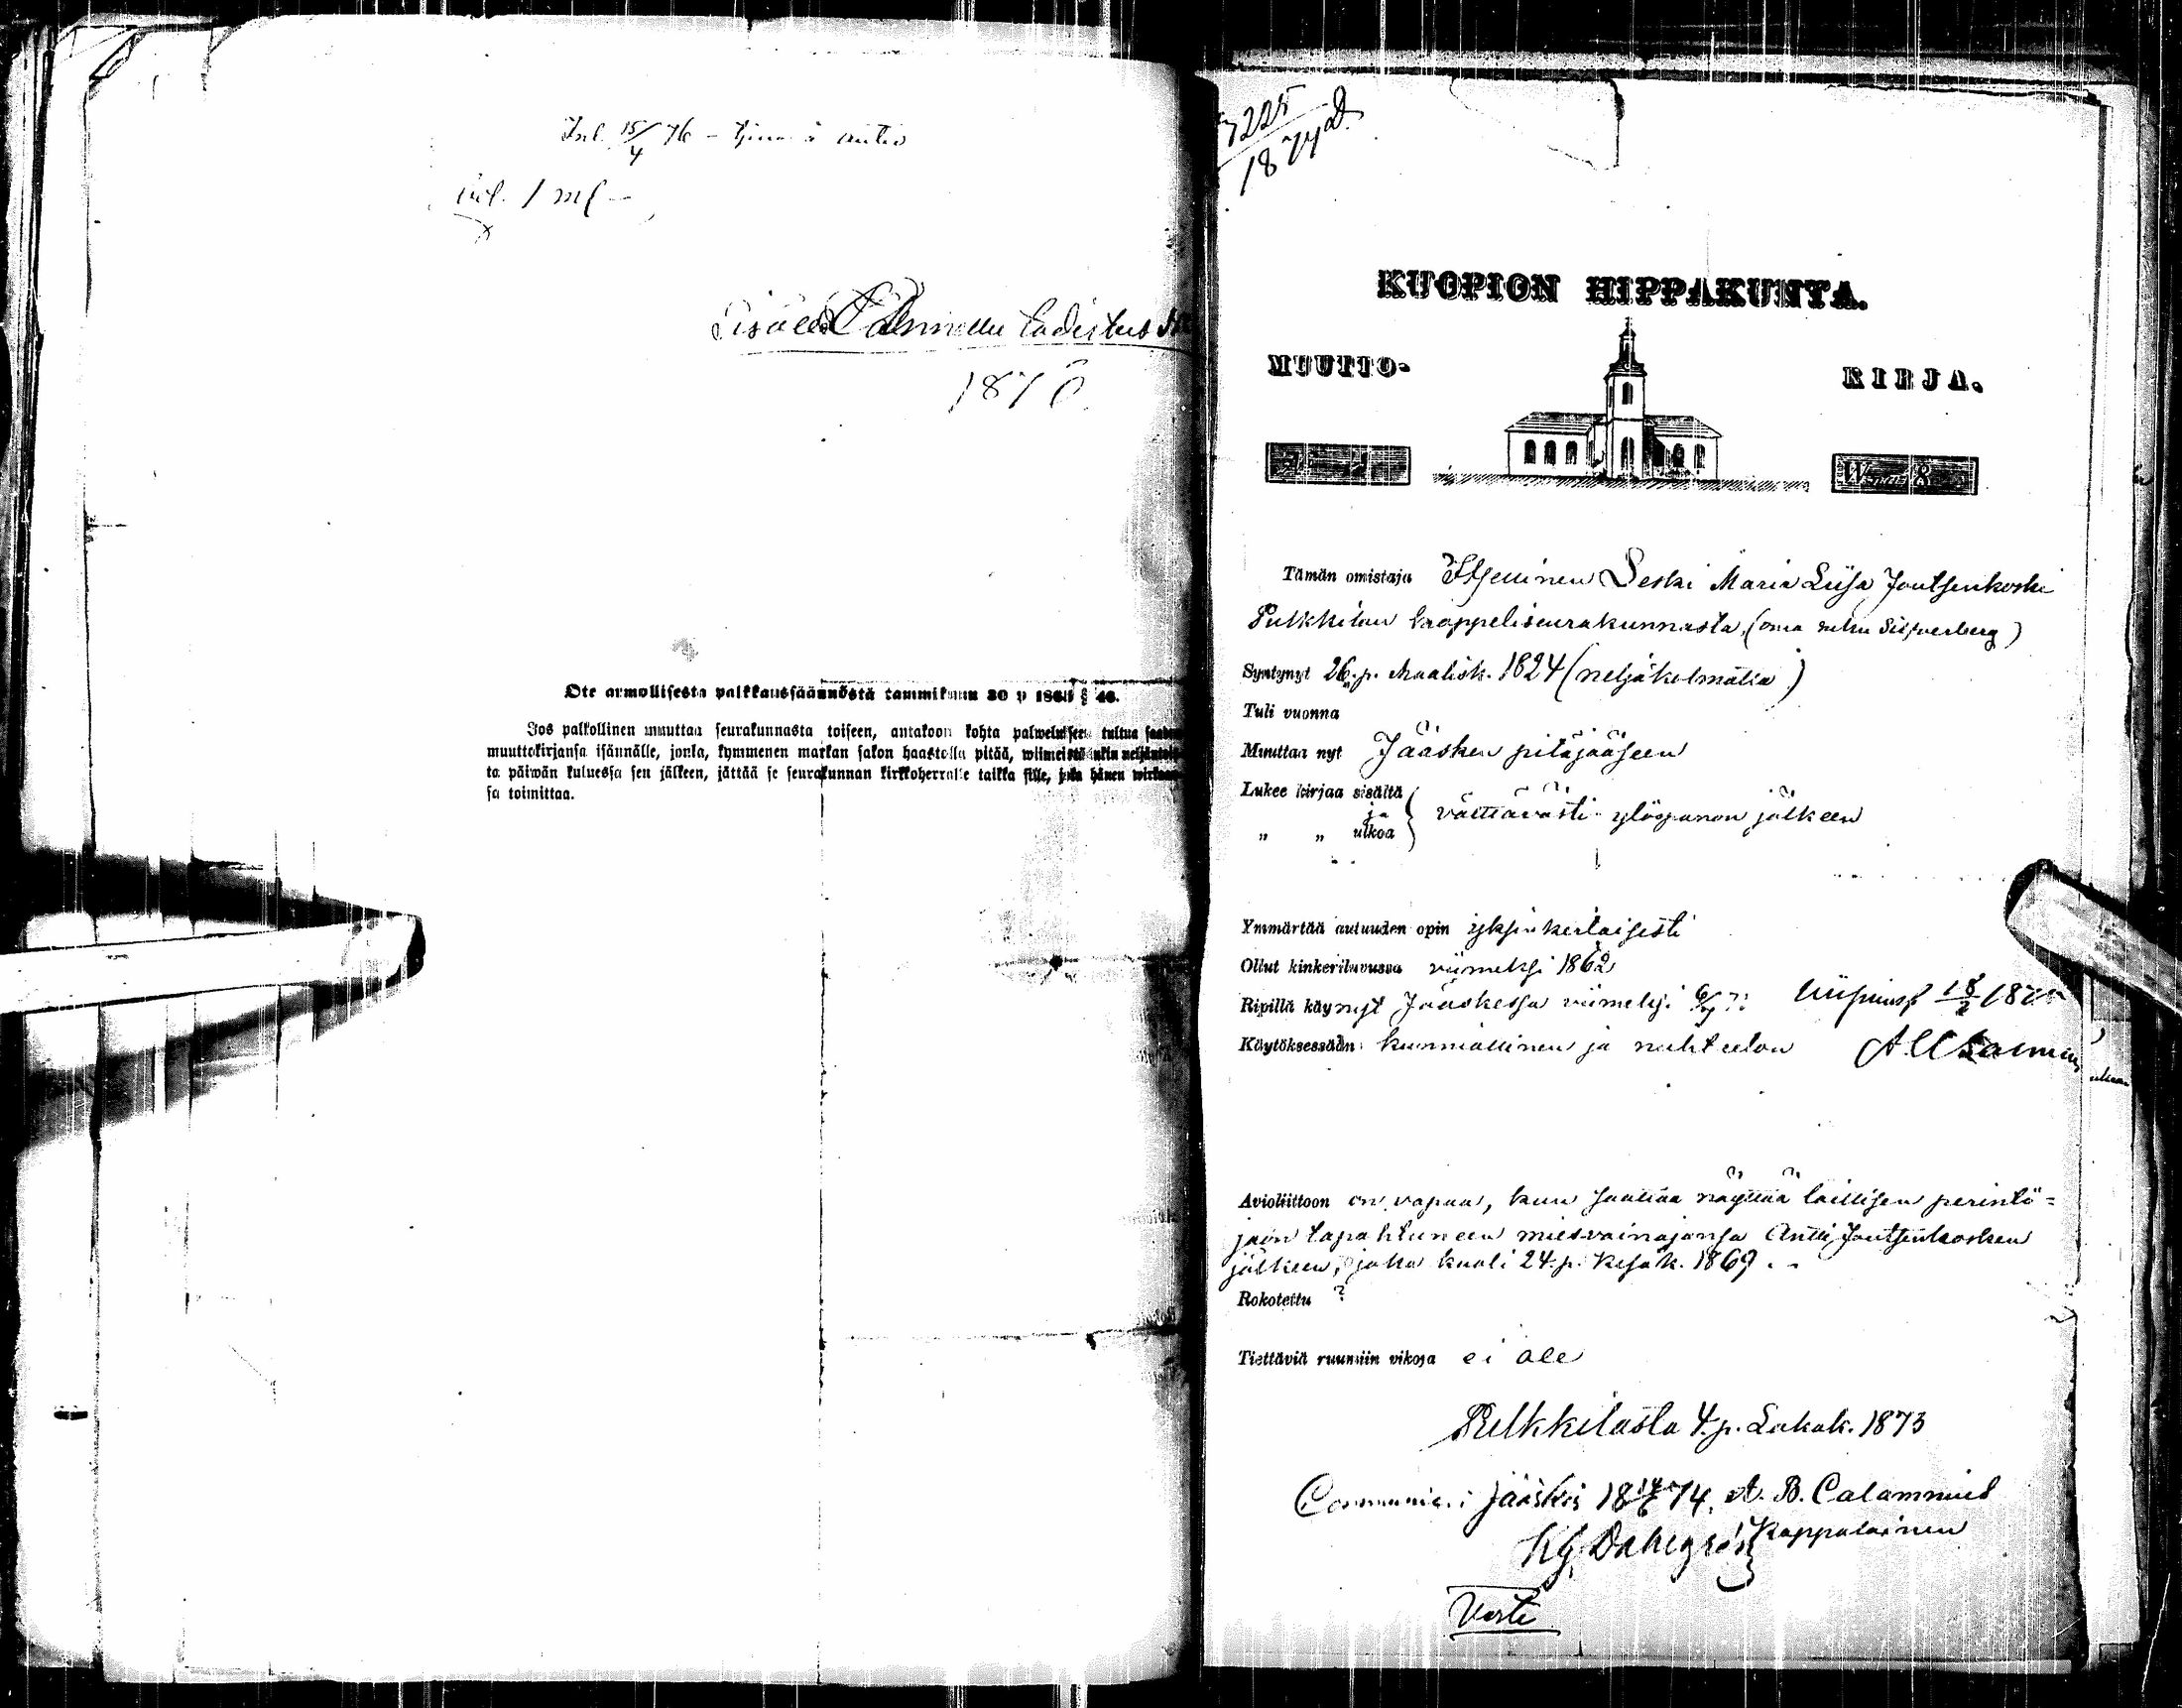 Inl. 15/4 76
1 mk
todistus
187
Ote armollisesta palkkaussäännöstä tammikuun 30 p 186 § 46.
Jos palkollinen muuttaa seurakunnasta toiseen, antakoon kohta palwelukseen tultua
muuttokirjansa isännälle, jonka, kymmenen markan sakon haastolla pitää, wiimeistäänkin
ta päiwän kuluessa sen jälkeen, jättää se seurakunnan kirkkoherralle taikka sille, joka hänen
sa toimittaa.
KUOPION HIPPAKUNTA.
MUUTTO- KIRJA.
Tämän omistaja Itsellinen Leski Maria Liisa Joutsenkoski
Pulkkilan kappeliseurakunnasta, (oma suku Silfverberg)
Syntynyt 26. p. Maalisk. 1824 (neljäkolmatta)
Tuli vuonna
Muuttaa nyt Jääsken pitäjääseen
Lukee kirjaa sisältä
ja
„ „ ulkoa
välttävästi ylöspanon jälkeen
Ymmärtää autuuden opin yksinkertaisesti
Ollut kinkeriluvussa viimeksi 1862
Ripillä käynyt Jääskessä viimeksi
Käytöksessään kunniallinen ja nuhteeton
Avioliittoon on vapaa, kun saattaa näyttää laillisen perintö=
jaon tapahtuneen miesvainajansa Antti Joutsenkosken
jälkeen, joka kuoli 24. p. Kesäk. 1869.
Rokotettu ?
Tiettäviä ruumiin vikoja ei ole
Pulkkilasta 4. p. Lokak. 1873
Jääskis 18 74. A. B. Calamnius
Kappalainen
Verte